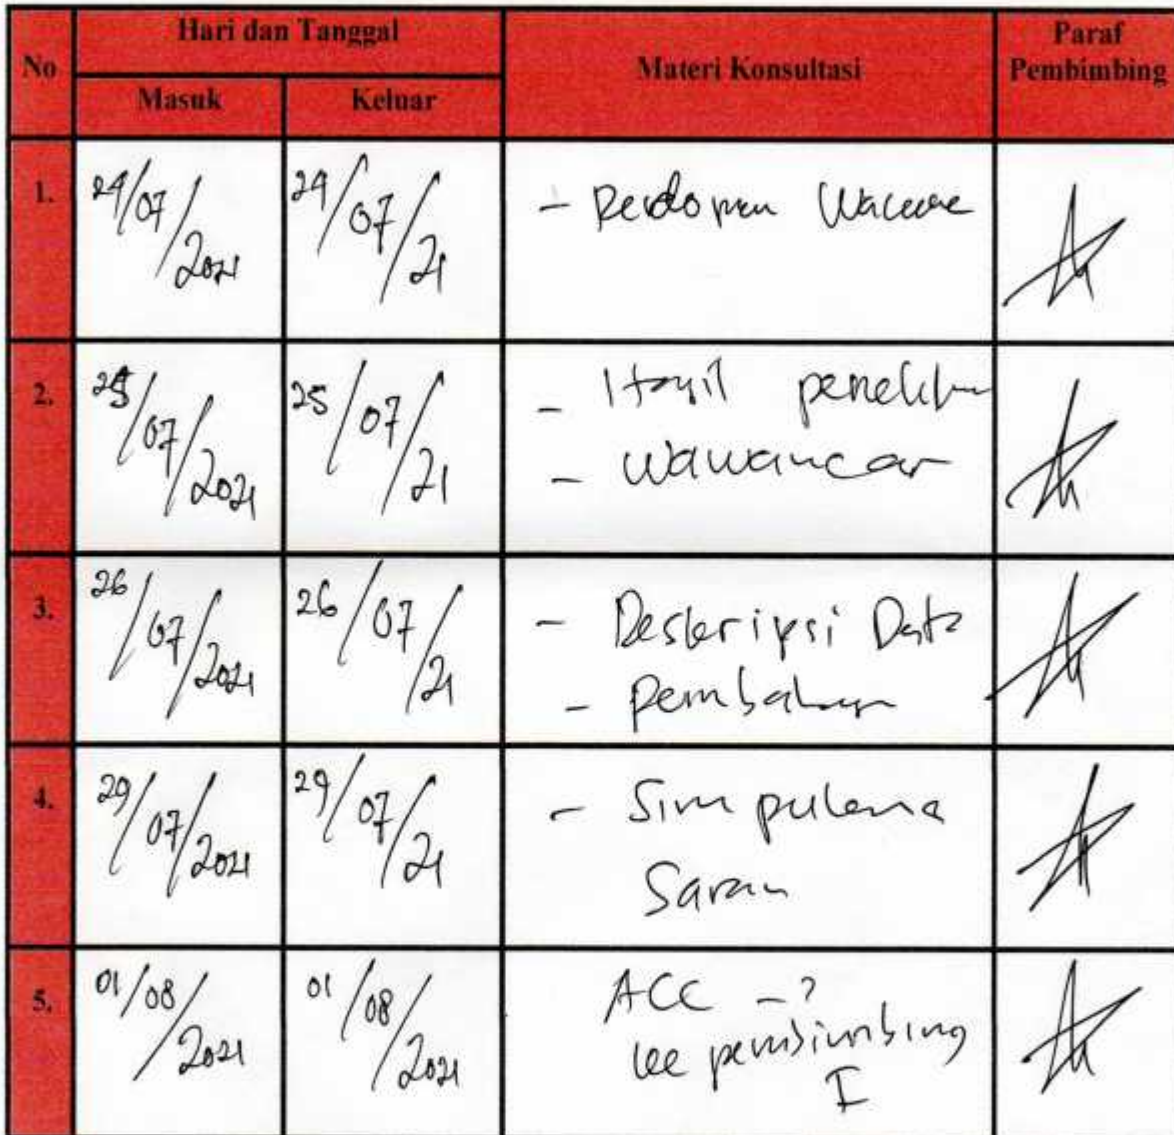 No
Hari dan Tanggal
Materi Konsultasi
Paraf
Pembimbing
Masuk
Keluar
1.
24/07/2021
24/07/21
- Pedoman
2.
25/07/2021
25/07/21
- Hasil penelitian
- Wawancar
3.
26/07/2021
26/07/21
- Deskripsi Data
- Pembahasan
4.
29/07/2021
29/07/21
- Simpulan
Saran
5.
01/08/2021
01/08/2021
ACC - ?
ke pembimbing
I